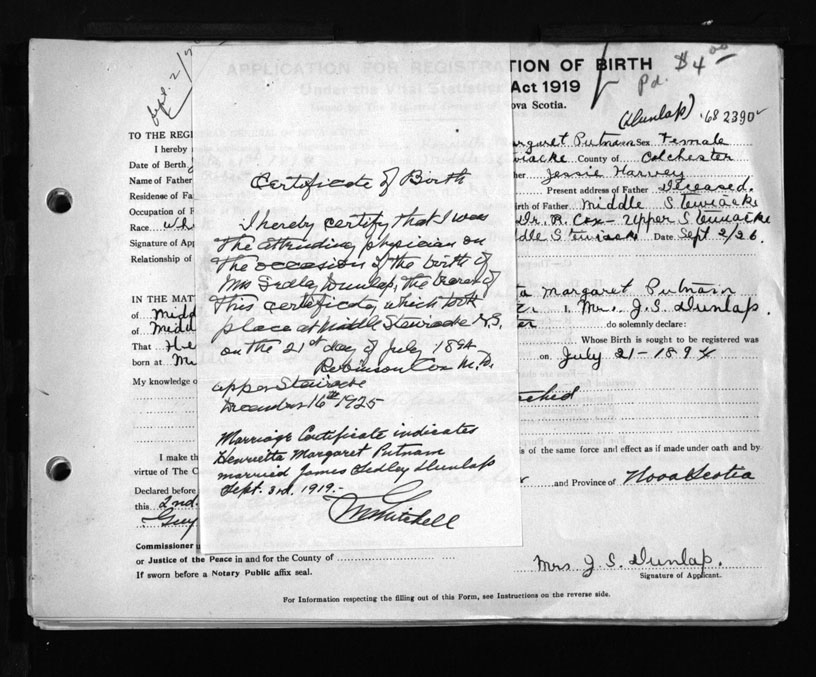 Sept. 2/26
APPLICATION FOR REGISTRATION OF BIRTH
$4.00
Pd.
Under the Vital Statistics Act 1919
Nova Scotia.
(Dunlap) '68 2390
TO THE REGI
I hereby
Margaret Putnam Sex Female
Date of Birth
County of Colchester
Name of Father
Jessie Harvey
Residence of Fa
Present address of Father Deceased.
Occupation of F
Birth of Father Middle Stewiacke
Race Wh
Dr. R. Cox - Upper Stewiacke
Signature of App
Middle Stewiacke Date Sept 2/26.
Relationship of
Certificate of Birth
I hereby certify that I was
the attending physician on
the occasion of the birth of
Mrs Sedley Dunlap, the bearer of
this certificate, which took
place at Middle Stewiacke N.S.
on the 21st day of July 1894
Robinson Cox M.D.
Upper Stewiacke
December 16th 1925
Marriage Certificate indicates
Henrietta Margaret Putnam
married James Sedley Dunlap
Sept. 3rd, 1919.-
Mitchell
IN THE MATT
Margaret Putnam
of Midd
I, Mrs. J. S. Dunlap.
of Midd
do solemnly declare:
That He
Whose Birth is sought to be registered was
born at Mi
on July 21-1894
My knowledge o
attached
I make th
is of the same force and effect as if made under oath and by
virtue of The C
Declared before
and Province of Nova Scotia
this 2nd.
Guy
Commissioner
or Justice of the Peace in and for the County of
Mrs J. S. Dunlap.
If sworn before a Notary Public affix seal.
Signature of Applicant.
For Information respecting the filling out of this Form, see Instructions on the reverse side.